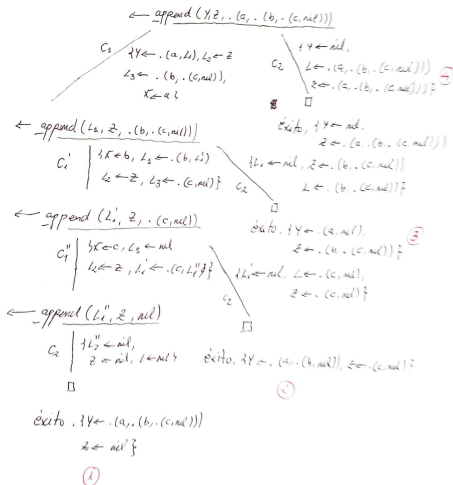 ← append (Y, Z, .(a, .(b, .(c, nil))))
C₁
{Y ← .(a, L₁), L₂ ← Z
L₃ ← .(b, .(c, nil)),
X ← a}
C₂
{Y ← nil,
L ← .(a, .(b, .(c, nil)))
Z ← .(a, .(b, .(c, nil)))}
④
□
← append (L₁, Z, .(b, .(c, nil)))
éxito, {Y ← nil,
Z ← .(a .(b .(c, nil)))
C₁'
{X ← b, L₁ ← .(b, L₁')
L₂ ← Z, L₃ ← .(c, nil)}
C₂
{L₁ ← nil, Z ← .(b, .(c, nil))
L ← .(b, .(c, nil))}
□
← append (L₁', Z, .(c, nil))
éxito, {Y ← .(a, nil),
Z ← .(b .(c, nil))}
③
C₁''
{X ← c, L₃ ← nil
L₂ ← Z, L₁' ← .(c, L₁'')}
C₂
{L₁' ← nil, L ← .(c, nil),
Z ← .(c, nil)}
□
← append (L₁'', Z, nil)
C₂
{L₁'' ← nil,
Z ← nil, L ← nil}
éxito, {Y ← .(a, .(b, nil)), Z ← .(c, nil)}
②
□
éxito, {Y ← .(a, .(b, .(c, nil)))
Z ← nil}
①